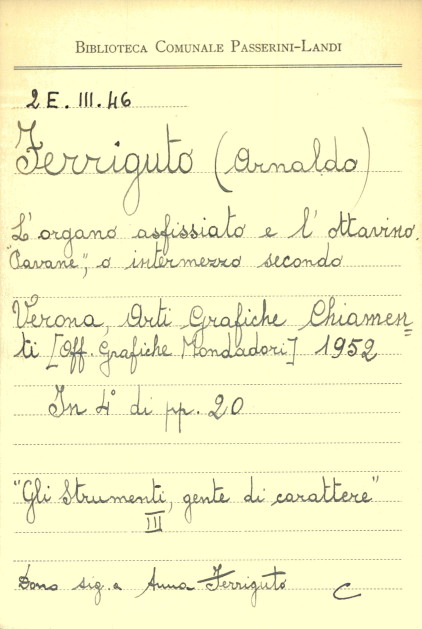 BIBLIOTECA COMUNALE PASSERINI-LANDI
2 E. III. 46
Ferriguto (Arnaldo)
L'organo asfissiato e l'ottavino.
"Pavane", o intermezzo secondo
Verona, Arti Grafiche Chiamen=
ti [Off. Grafiche Mondadori] 1952
In 4° di pp. 20
"Gli Strumenti, gente di carattere"
III
Dono sig.a Anna Ferriguto C